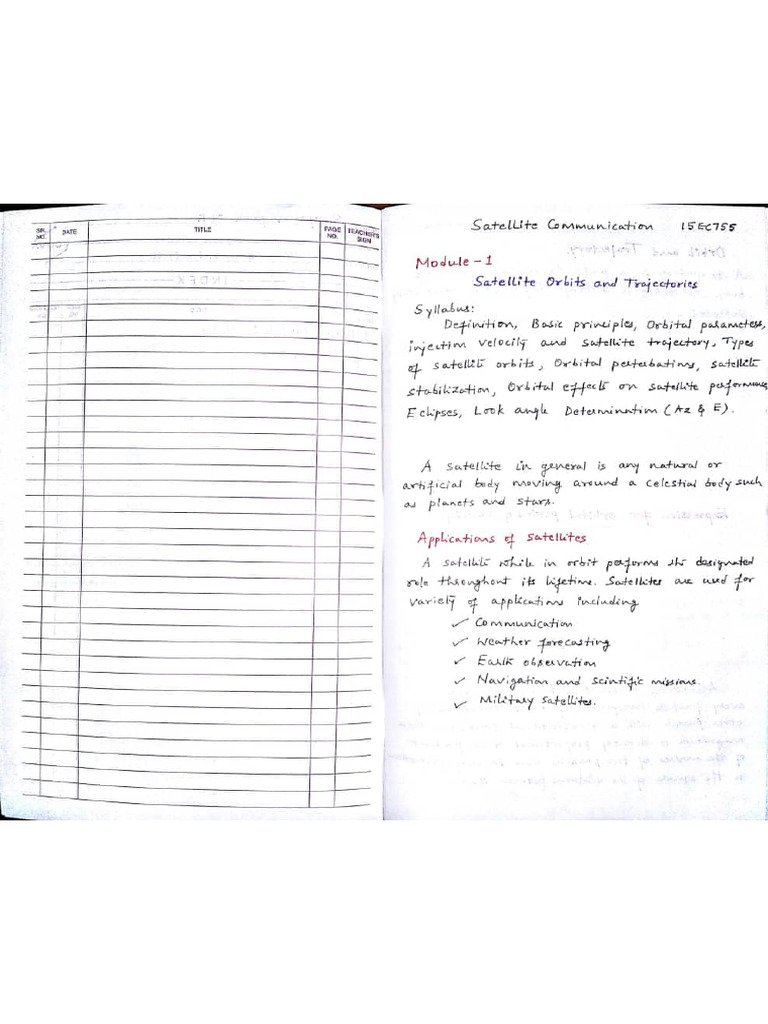 SR. NO. DATE TITLE PAGE NO. TEACHER'S SIGN
INDEX
Satellite Communication 15EC755
Module-1
Satellite Orbits and Trajectories
Syllabus:
Definition, Basic principles, Orbital parameters,
injection velocity and satellite trajectory, Types
of satellite orbits, Orbital perturbations, satellite
stabilization, Orbital effects on satellite performance,
Eclipses, Look angle Determination (Az & E).
A satellite in general is any natural or
artificial body moving around a celestial body such
as planets and stars.
Applications of Satellites
A satellite while in orbit performs its designated
role throughout its lifetime. Satellites are used for
variety of applications including
✓ Communication
✓ Weather forecasting
✓ Earth observation
✓ Navigation and scintific missions.
✓ Military satellites.